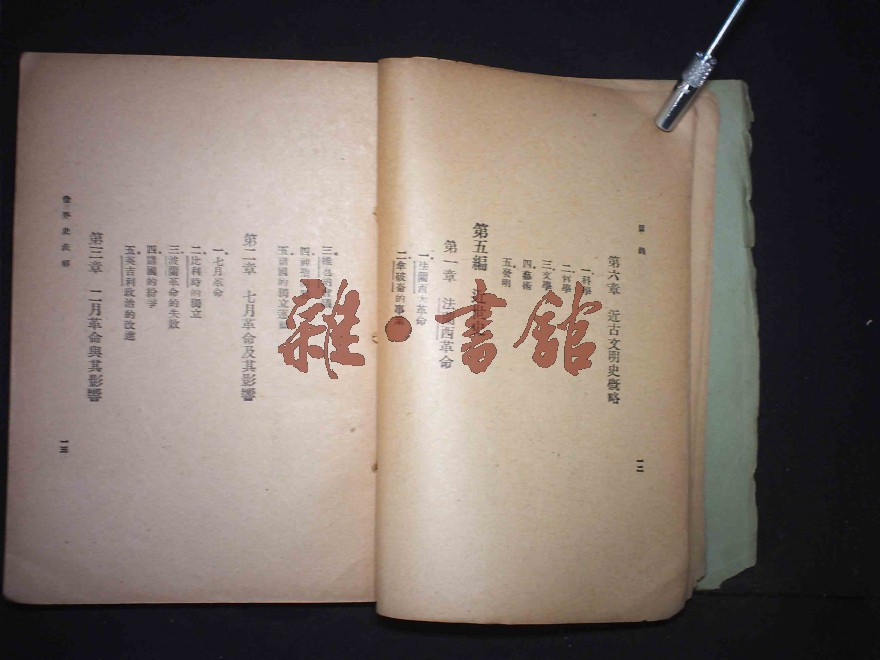 目錄
第六章 近古文明史概略
一.科學
二.哲學
三.文學
四.藝術
五.發明
第五編 近世史
第一章 法蘭西革命
一.法蘭西大革命
二.拿破崙的事業
一二
三.維也納會議
四.神聖
五.諸國的獨立運動
第二章 七月革命及其影響
一.七月革命
二.比利時的獨立
三.波蘭革命的失敗
四.諸國的紛爭
五.英吉利政治的改進
第三章 二月革命與其影響
世界史表解
一三
雜·書館